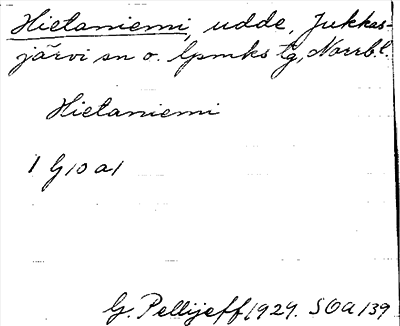 Hietaniemi, udde, Jukkas-
järvi sn o. lpmks tg, Norrb. l.
Hietaniemi
1 G 10 a 1
G. Pellijeff 1929. SOA 139